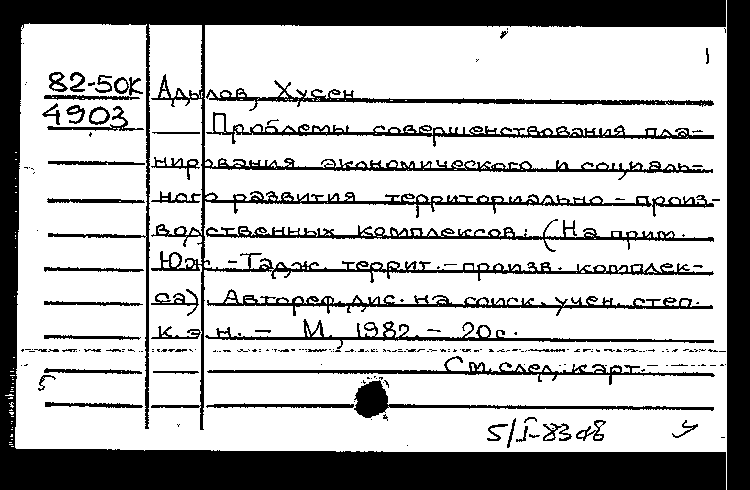 1
82-50К Адылов, Хусен
4903 Проблемы совершенствования пла-
нирования экономического и социаль-
ного развития территориально-произ-
водственных комплексов: (На прим.
Юж.-Тадж. террит.-произв. комплек-
са). Автореф. дис. на соиск. учен. степ.
к. э. н. - М., 1982. - 20с.
См. след. карт.
5
5/I-83